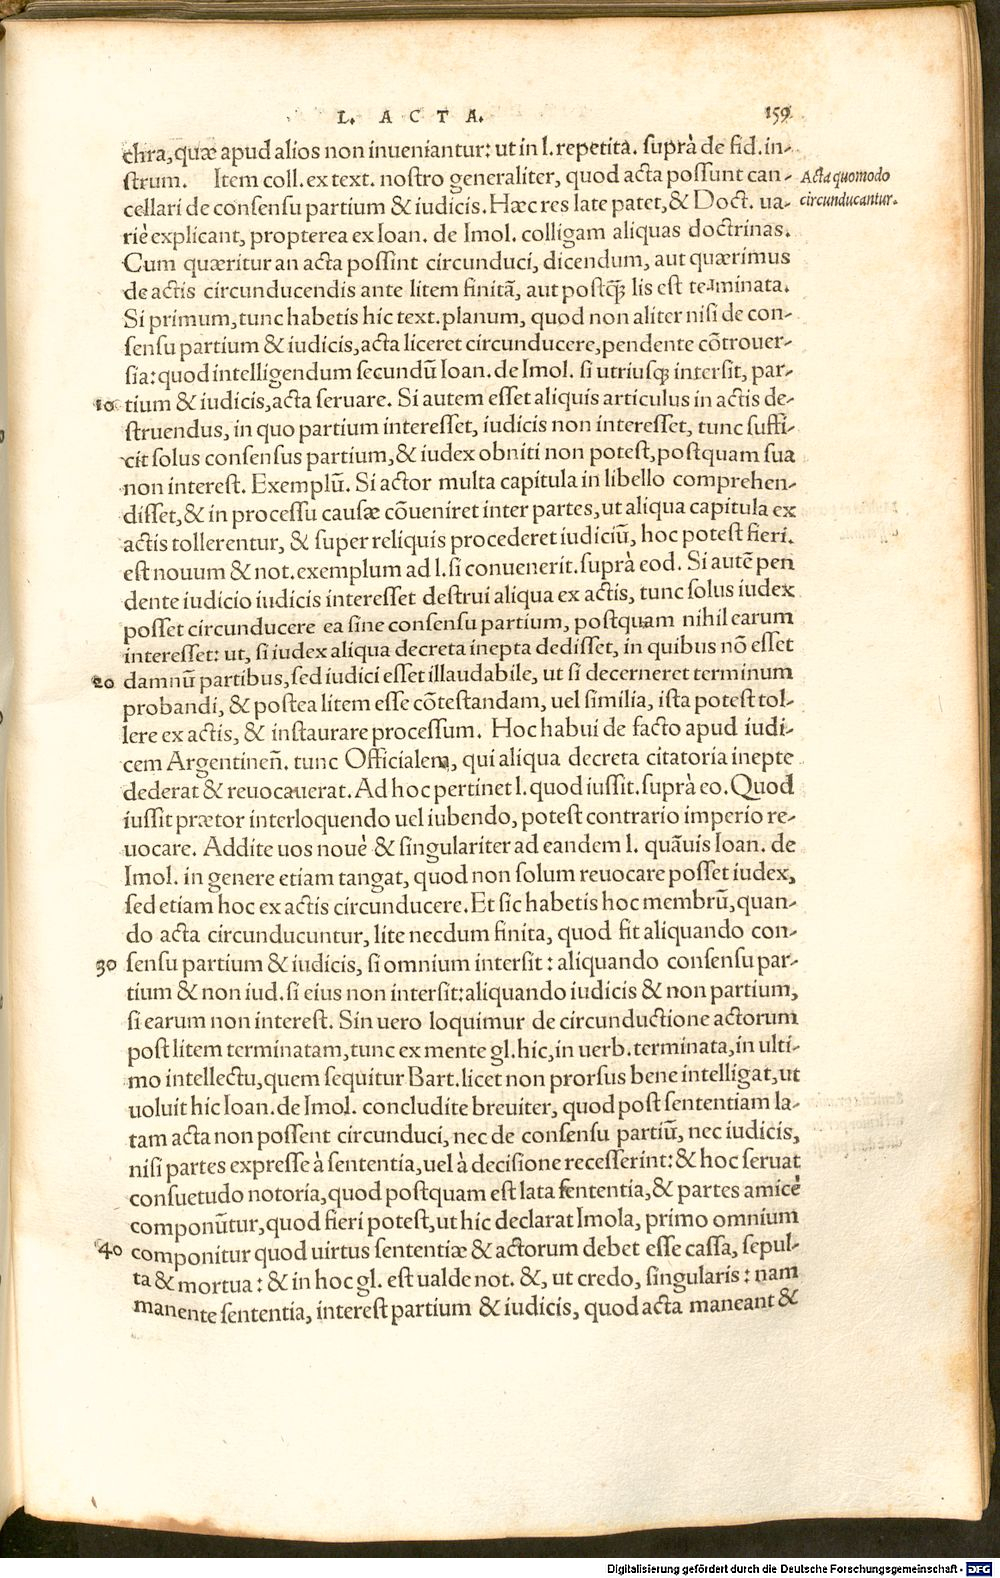 L. ACTA. 159
chra, quæ apud alios non inueniantur: ut in l. repetita. suprà de fid. in-
strum. Item coll. ex text. nostro generaliter, quod acta possunt can-
cellari de consensu partium & iudicis. Hæc res late patet, & Doct. ua-
riè explicant, propterea ex Ioan. de Imol. colligam aliquas doctrinas.
Acta quomodo
circunducantur.
Cum quæritur an acta possint circunduci, dicendum, aut quærimus
de actis circunducendis ante litem finitã, aut postq̃ʒ lis est terminata.
Si primum, tunc habetis hic text. planum, quod non aliter nisi de con-
sensu partium & iudicis, acta liceret circunducere, pendente cõtrouer-
sia: quod intelligendum secundũ Ioan. de Imol. si utriusqʒ intersit, par-
10 tium & iudicis, acta seruare. Si autem esset aliquis articulus in actis de-
struendus, in quo partium interesset, iudicis non interesset, tunc suffi-
cit solus consensus partium, & iudex obniti non potest, postquam sua
non interest. Exemplũ. Si actor multa capitula in libello comprehen-
disset, & in processu causæ cõueniret inter partes, ut aliqua capitula ex
actis tollerentur, & super reliquis procederet iudiciũ, hoc potest fieri.
est nouum & not. exemplum ad l. si conuenerit. suprà eod. Si autẽ pen
dente iudicio iudicis interesset destrui aliqua ex actis, tunc solus iudex
posset circunducere ea sine consensu partium, postquam nihil earum
interesset: ut, si iudex aliqua decreta inepta dedisset, in quibus nõ esset
20 damnũ partibus, sed iudici esset illaudabile, ut si decerneret terminum
probandi, & postea litem esse cõtestandam, uel similia, ista potest tol-
lere ex actis, & instaurare processum. Hoc habui de facto apud iudi-
cem Argentineñ. tunc Officialem, qui aliqua decreta citatoria inepte
dederat & reuocauerat. Ad hoc pertinet l. quod iussit. suprà eo. Quod
iussit prætor interloquendo uel iubendo, potest contrario imperio re-
uocare. Addite uos nouè & singulariter ad eandem l. quãuis Ioan. de
Imol. in genere etiam tangat, quod non solum reuocare posset iudex,
sed etiam hoc ex actis circunducere. Et sic habetis hoc membrũ, quan-
do acta circunducuntur, lite necdum finita, quod fit aliquando con-
30 sensu partium & iudicis, si omnium intersit: aliquando consensu par-
tium & non iud. si eius non intersit: aliquando iudicis & non partium,
si earum non interest. Sin uero loquimur de circunductione actorum
post litem terminatam, tunc ex mente gl. hic, in uerb. terminata, in ulti-
mo intellectu, quem sequitur Bart. licet non prorsus bene intelligat, ut
uoluit hic Ioan. de Imol. concludite breuiter, quod post sententiam la-
tam acta non possent circunduci, nec de consensu partiũ, nec iudicis,
nisi partes expresse à sententia, uel à decisione recesserint: & hoc seruat
consuetudo notoria, quod postquam est lata sententia, & partes amicè
componũtur, quod fieri potest, ut hic declarat Imola, primo omnium
40 componitur quod uirtus sententiæ & actorum debet esse cassa, sepul-
ta & mortua: & in hoc gl. est ualde not. &, ut credo, singularis: nam
manente sententia, interest partium & iudicis, quod acta maneant &
Digitalisierung gefördert durch die Deutsche Forschungsgemeinschaft - DFG